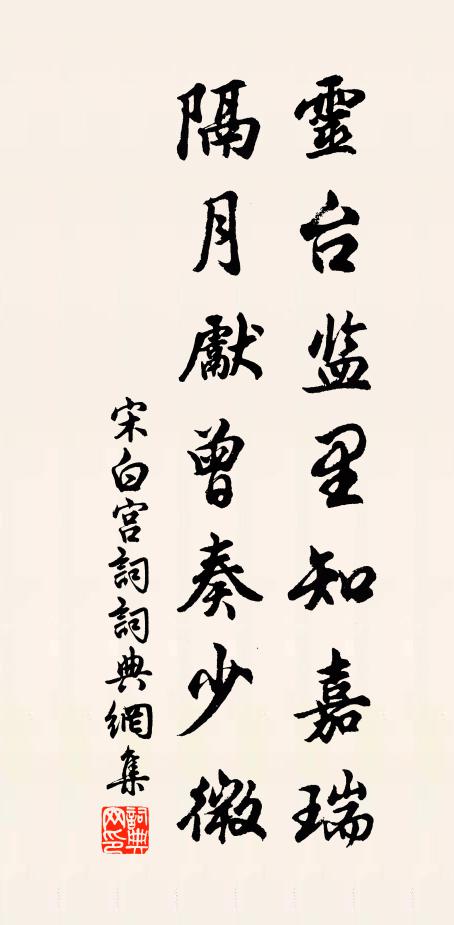 靈台监里知嘉瑞
隔月獻曾奏少微
宋白宫詞詞典網集
詞典网印